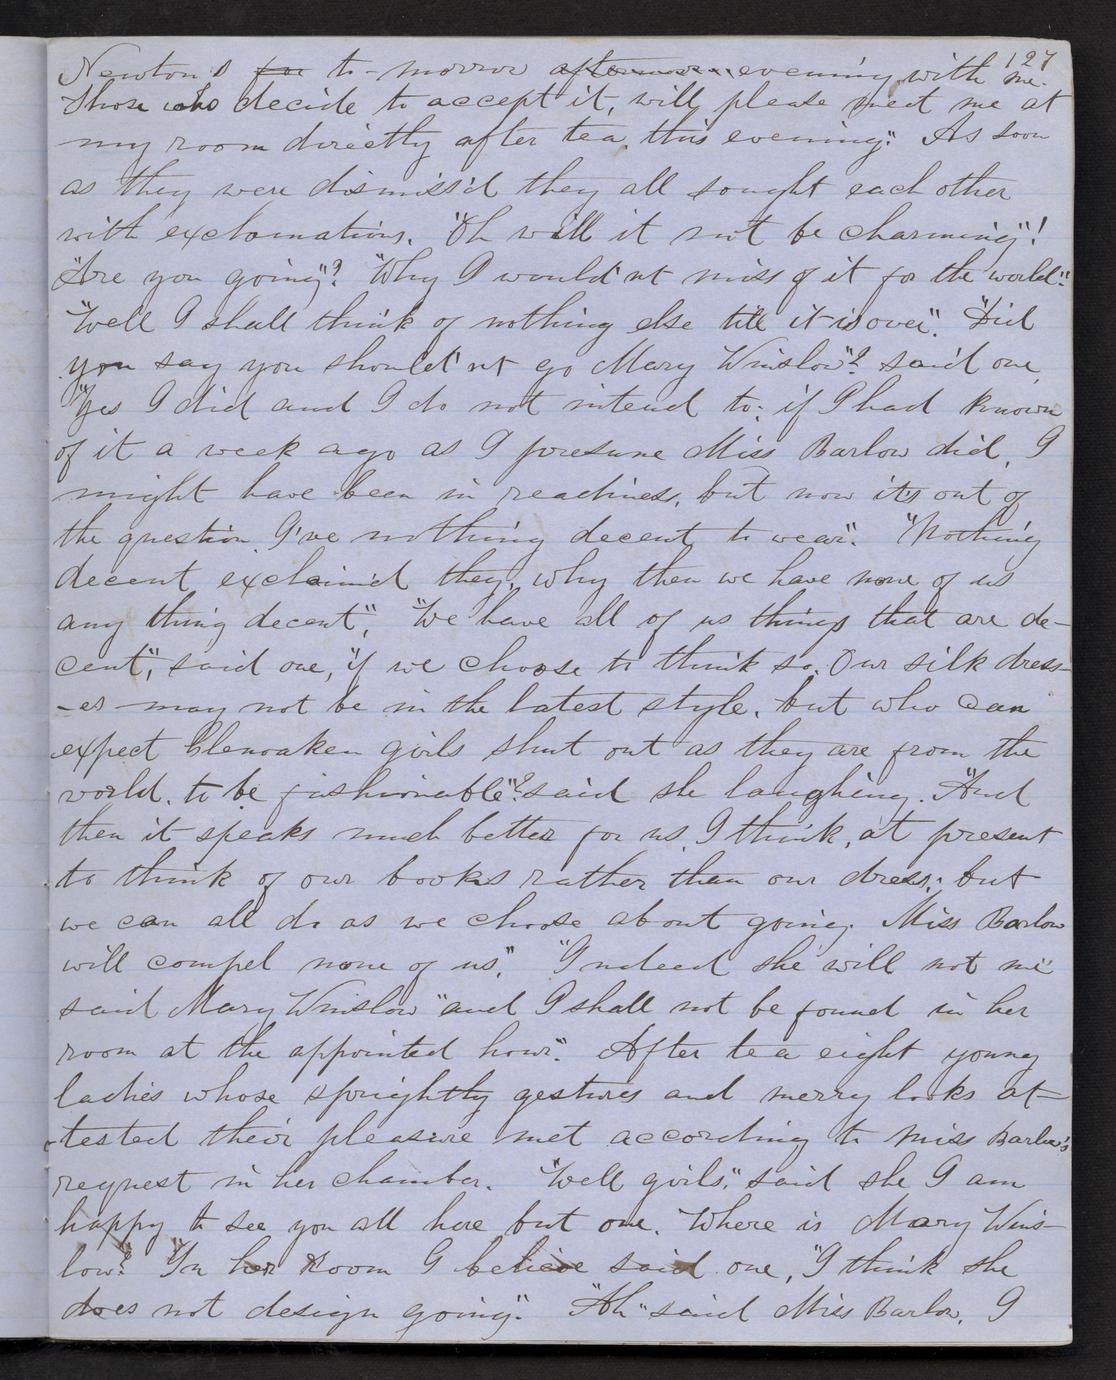 127
Newton's for to-morrow afternoon evening with me.
Those who decide to accept it, will please meet me at
my room directly after tea, this evening." As soon
as they were dismiss'd they all sought each other
with exclamations. "Oh will it not be charming"!
"Are you going"? "Why I would'nt miss of it for the world".
"Well I shall think of nothing else till it is over". "Did
you say you should'nt go Mary Winslow"? said one.
"Yes I did and I do not intend to; if I had known
of it a week ago as I presume Miss Barlow did, I
might have been in readiness, but now it's out of
the question. I've nothing decent to wear". "Nothing
decent exclaim'd they, why then we have none of us
any thing decent". "We have all of us things that are de-
cent", said one, "if we choose to think so. Our silk dress-
-es may not be in the latest style, but who can
expect Glenoaken girls shut out as they are from the
world, to be fashionable"? said she laughing. "And
then it speaks much better for us, I think, at present
to think of our books rather than our dress; but
we can all do as we choose about going. Miss Barlow
will compel none of us". "Indeed she will not me"
said Mary Winslow "and I shall not be found in her
room at the appointed hour". After tea eight young
ladies whose sprightly gestures and merry looks at-
tested their pleasure met according to Miss Barlow's
request in her chamber. "Well girls", said she I am
happy to see you all here but one. Where is Mary Wins-
low? "In her room I believe said one, "I think she
does not design going". "Ah" said Miss Barlow, I